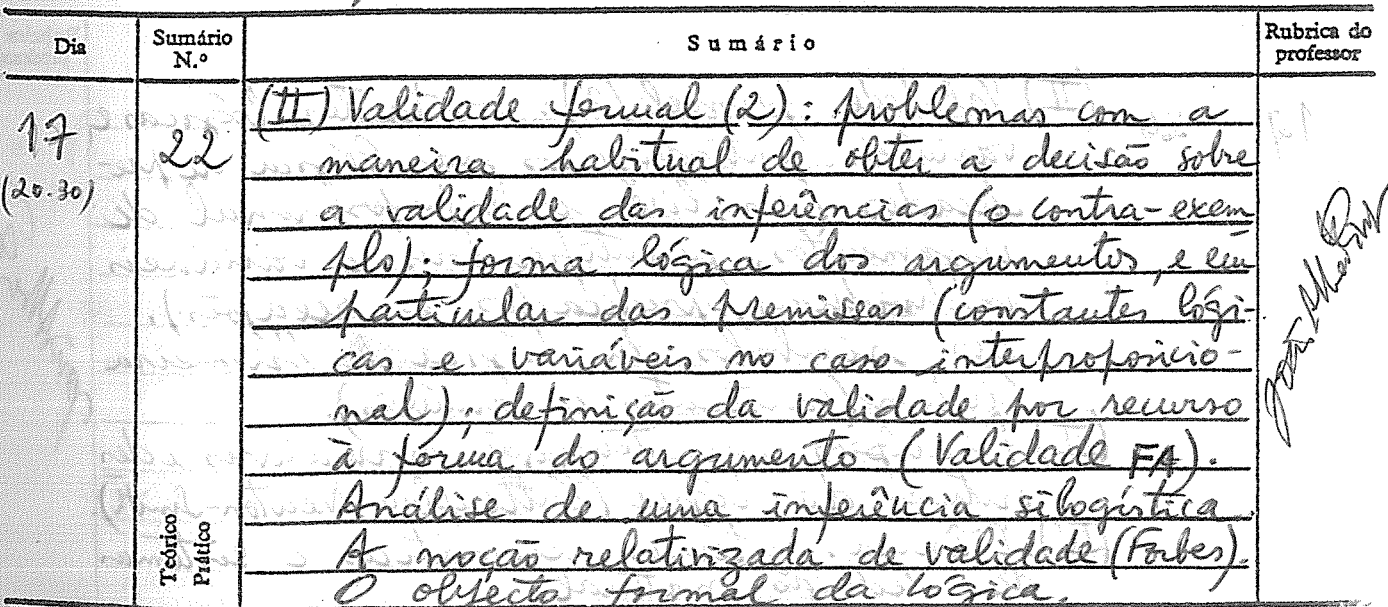 Dia
Sumário N.º
Sumário
Rubrica do professor
17
(20.30)
22
(II) Validade formal (2): problemas com a
maneira habitual de obter a decisão sobre
a validade das inferências (o contra-exem
plo); forma lógica dos argumentos, e em
particular das premissas (constantes lógi-
cas e variáveis no caso interproposicio-
nal); definição da validade por recurso
à forma do argumento (Validade FA).
Análise de uma inferência silogística
A noção relativizada de validade (Forbes).
O objecto formal da lógica.
Teórico
Prático
João